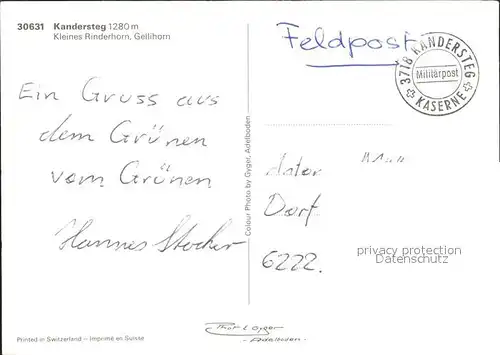 30631 Kandersteg 1280 m
Kleines Rinderhorn, Gellihorn
Feldpost
3718 KANDERSTEG
Militärpost
KASERNE
Ein Gruss aus
dem Grünen
vom Grünen
Hannes Stocker
Colour Photo by Gyger, Adelboden
Dorf
6222.
privacy protection
Reference Sample
Printed in Switzerland – Imprimé en Suisse
Gyger
- Adelboden -